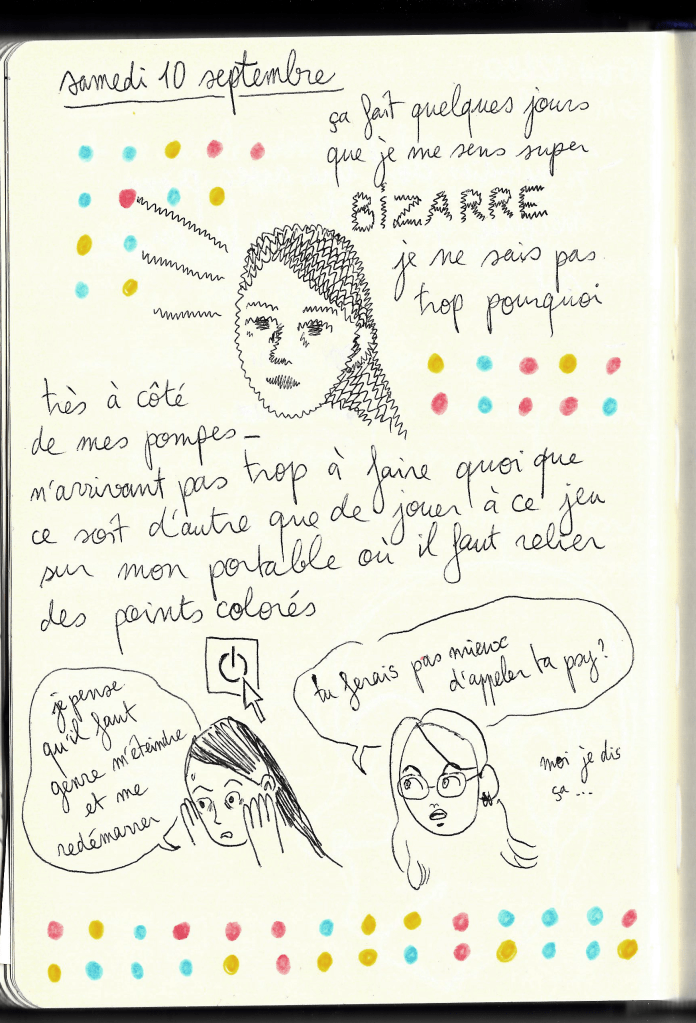 samedi 10 septembre
ça fait quelques jours
que je me sens super
BIZARRE
je ne sais pas
trop pourquoi
très à côté
de mes pompes_
n'arrivant pas trop à faire quoi que
ce soit d'autre que de jouer à ce jeu
sur mon portable où il faut relier
des points colorés
je pense
qu'il faut
genre m'éteindre
et me
redémarrer
tu ferais pas mieux
d'appeler ta psy?
moi je dis
ça...